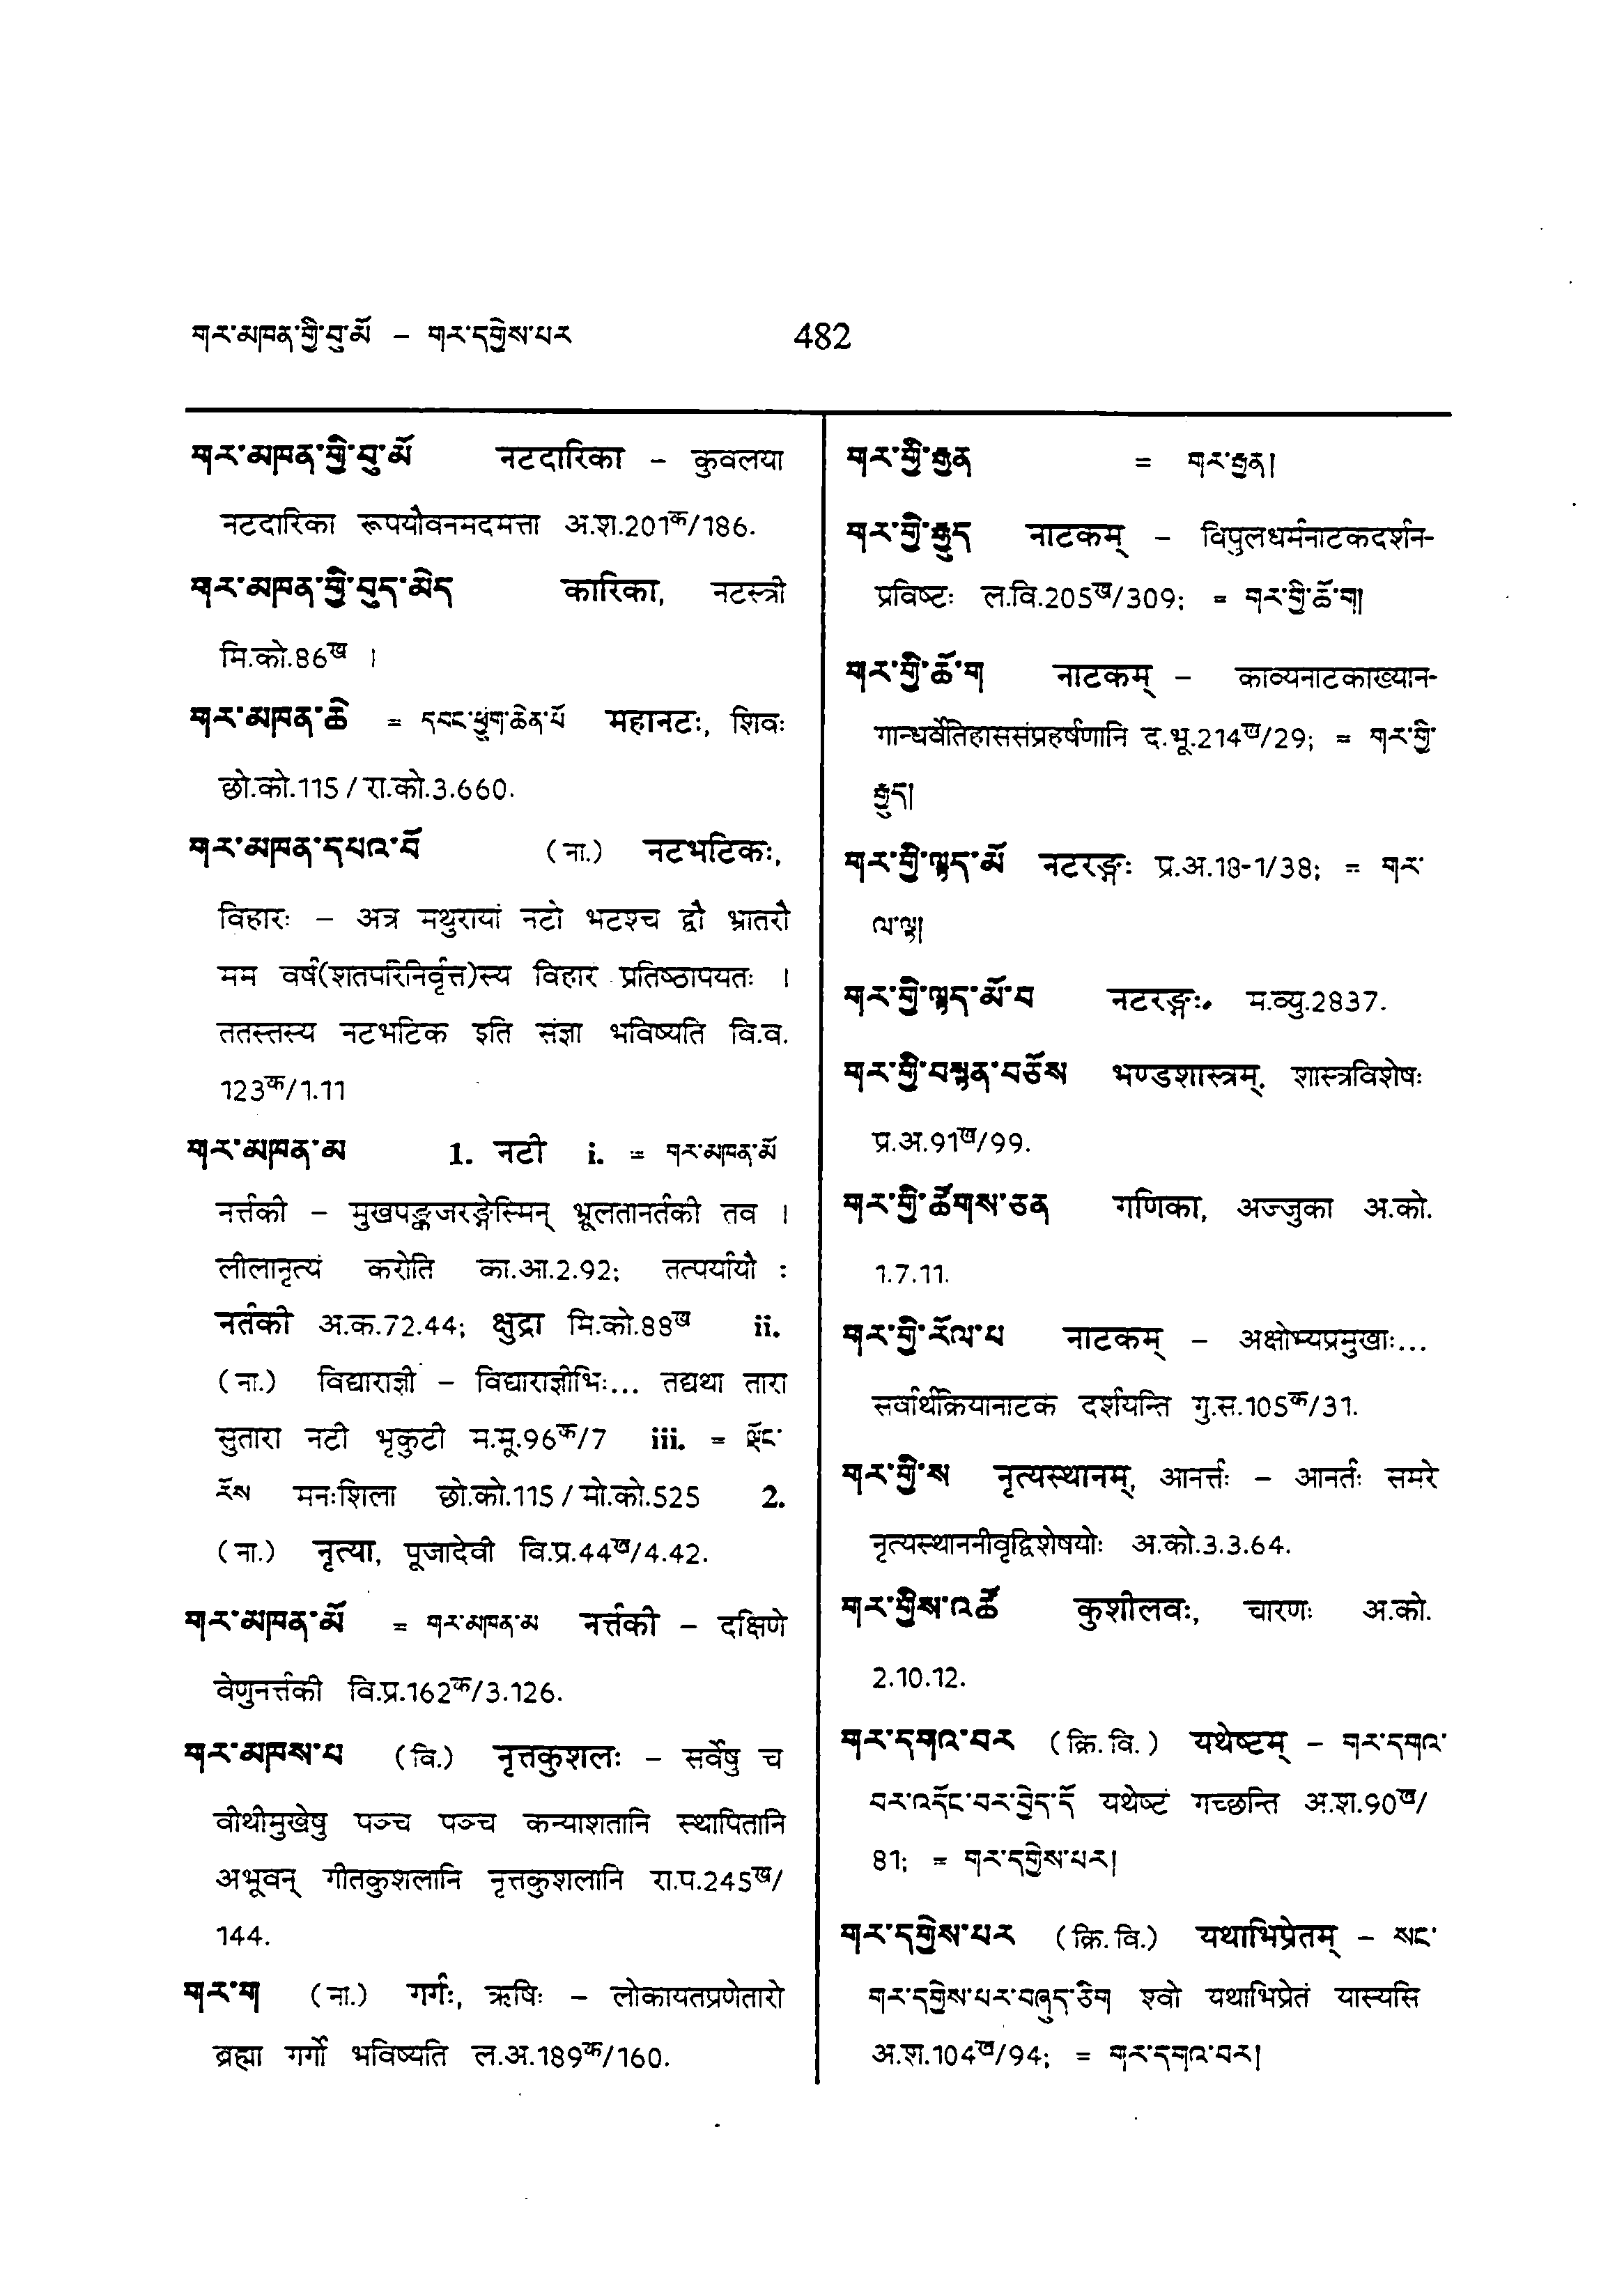 གར་མཁན་གྱི་བུ་མོ – གར་དགྱེས་པར 482
གར་མཁན་གྱི་བུ་མོ नटदारिका – कुवलया
नटदारिका रूपयौवनमदमत्ता अ.श.201क/186.
གར་མཁན་གྱི་བུད་མེད कारिका, नटस्त्री
मि.को.86ख ।
གར་མཁན་ཆེ = དབང་ཕྱུག་ཆེན་པོ महानटः, शिवः
छो.को.115 / रा.को.3.660.
གར་མཁན་དཔའ་བོ (ना.) नटभटिकः,
विहारः – अत्र मथुरायां नटो भटश्च द्वौ भ्रातरौ
मम वर्ष(शतपरिनिर्वृत्त)स्य विहारं प्रतिष्ठापयतः ।
ततस्तस्य नटभटिक इति संज्ञा भविष्यति वि.व.
123क/1.11
གར་མཁན་མ 1. नटी i. = གར་མཁན་མོ
नर्त्तकी – मुखपङ्कजरङ्गेस्मिन् भ्रूलतानर्तकी तव ।
लीलानृत्यं करोति का.आ.2.92; तत्पर्यायौ :
नर्तकी अ.क.72.44; क्षुद्रा मि.को.88ख ii.
(ना.) विद्याराज्ञी – विद्याराज्ञीभिः... तद्यथा तारा
सुतारा नटी भृकुटी म.मू.96क/7 iii. = ལྡོང་
རོས मनःशिला छो.को.115 / मो.को.525 2.
(ना.) नृत्या, पूजादेवी वि.प्र.44ख/4.42.
གར་མཁན་མོ = གར་མཁན་མ नर्त्तकी – दक्षिणे
वेणुनर्त्तकी वि.प्र.162क/3.126.
གར་མཁས་པ (वि.) नृत्तकुशलः – सर्वेषु च
वीथीमुखेषु पञ्च पञ्च कन्याशतानि स्थापितानि
अभूवन् गीतकुशलानि नृत्तकुशलानि रा.प.245ख/
144.
གར་ག (ना.) गर्गः, ऋषिः – लोकायतप्रणेतारो
ब्रह्मा गर्गो भविष्यति ल.अ.189क/160.
གར་གྱི་རྒྱན = གར་རྒྱན།
གར་གྱི་རྒྱུད नाटकम् – विपुलधर्मनाटकदर्शन-
प्रविष्टः ल.वि.205ख/309; = གར་གྱི་ཆོ་ག།
གར་གྱི་ཆོ་ག नाटकम् – काव्यनाटकाख्यान-
गान्धर्वेतिहाससंप्रहर्षणानि द.भू.214ख/29; = གར་གྱི་
རྒྱུད།
གར་གྱི་ལྟད་མོ नटरङ्गः प्र.अ.18-1/38; = གར་
ལ་ལྟ།
གར་གྱི་ལྟད་མོ་བ नटरङ्गः. म.व्यु.2837.
གར་གྱི་བསྟན་བཅོས भण्डशास्त्रम्, शास्त्रविशेषः
प्र.अ.91ख/99.
གར་གྱི་ཚོགས་ཅན गणिका, अज्जुका अ.को.
1.7.11.
གར་གྱི་རོལ་པ नाटकम् – अक्षोभ्यप्रमुखाः...
सर्वार्थक्रियानाटकं दर्शयन्ति गु.स.105क/31.
གར་གྱི་ས नृत्यस्थानम्, आनर्त्तः – आनर्तः समरे
नृत्यस्थाननीवृद्विशेषयोः अ.को.3.3.64.
གར་གྱིས་འཚོ कुशीलवः, चारणः अ.को.
2.10.12.
གར་དགའ་བར (क्रि.वि.) यथेष्टम् – གར་དགའ་
བར་འདོང་བར་བྱེད་དོ यथेष्टं गच्छन्ति अ.श.90ख/
81; = གར་དགྱེས་པར།
གར་དགྱེས་པར (क्रि.वि.) यथाभिप्रेतम् – སང་
གར་དགྱེས་པར་བཞུད་ཅིག श्वो यथाभिप्रेतं यास्यसि
अ.श.104ख/94; = གར་དགའ་བར།